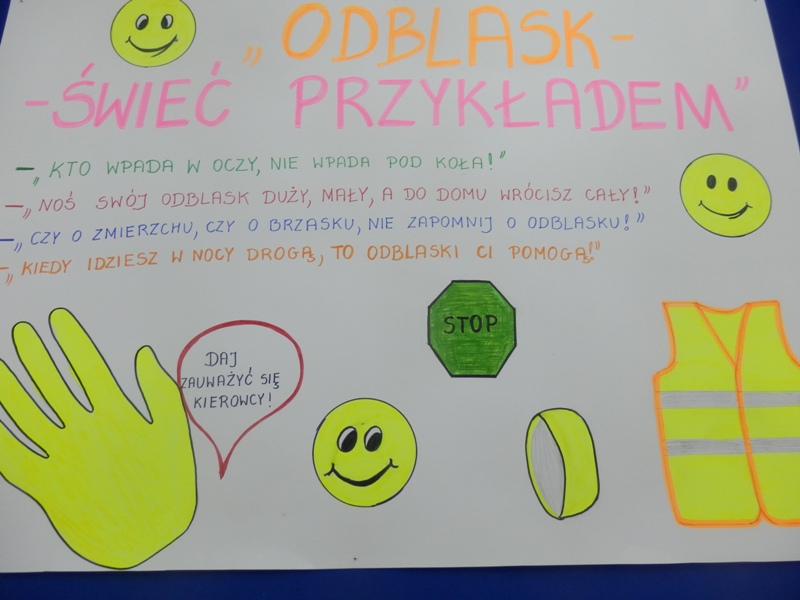 „ODBLASK-
-ŚWIEĆ PRZYKŁADEM”
-„KTO WPADA W OCZY, NIE WPADA POD KOŁA!”
-„NOŚ SWÓJ ODBLASK DUŻY, MAŁY, A DO DOMU WRÓCISZ CAŁY!”
-„CZY O ZMIERZCHU, CZY O BRZASKU, NIE ZAPOMNIJ O ODBLASKU!”
-„KIEDY IDZIESZ W NOCY DROGĄ, TO ODBLASKI CI POMOGĄ!”
STOP
DAJ
ZAUWAŻYĆ SIĘ
KIEROWCY!